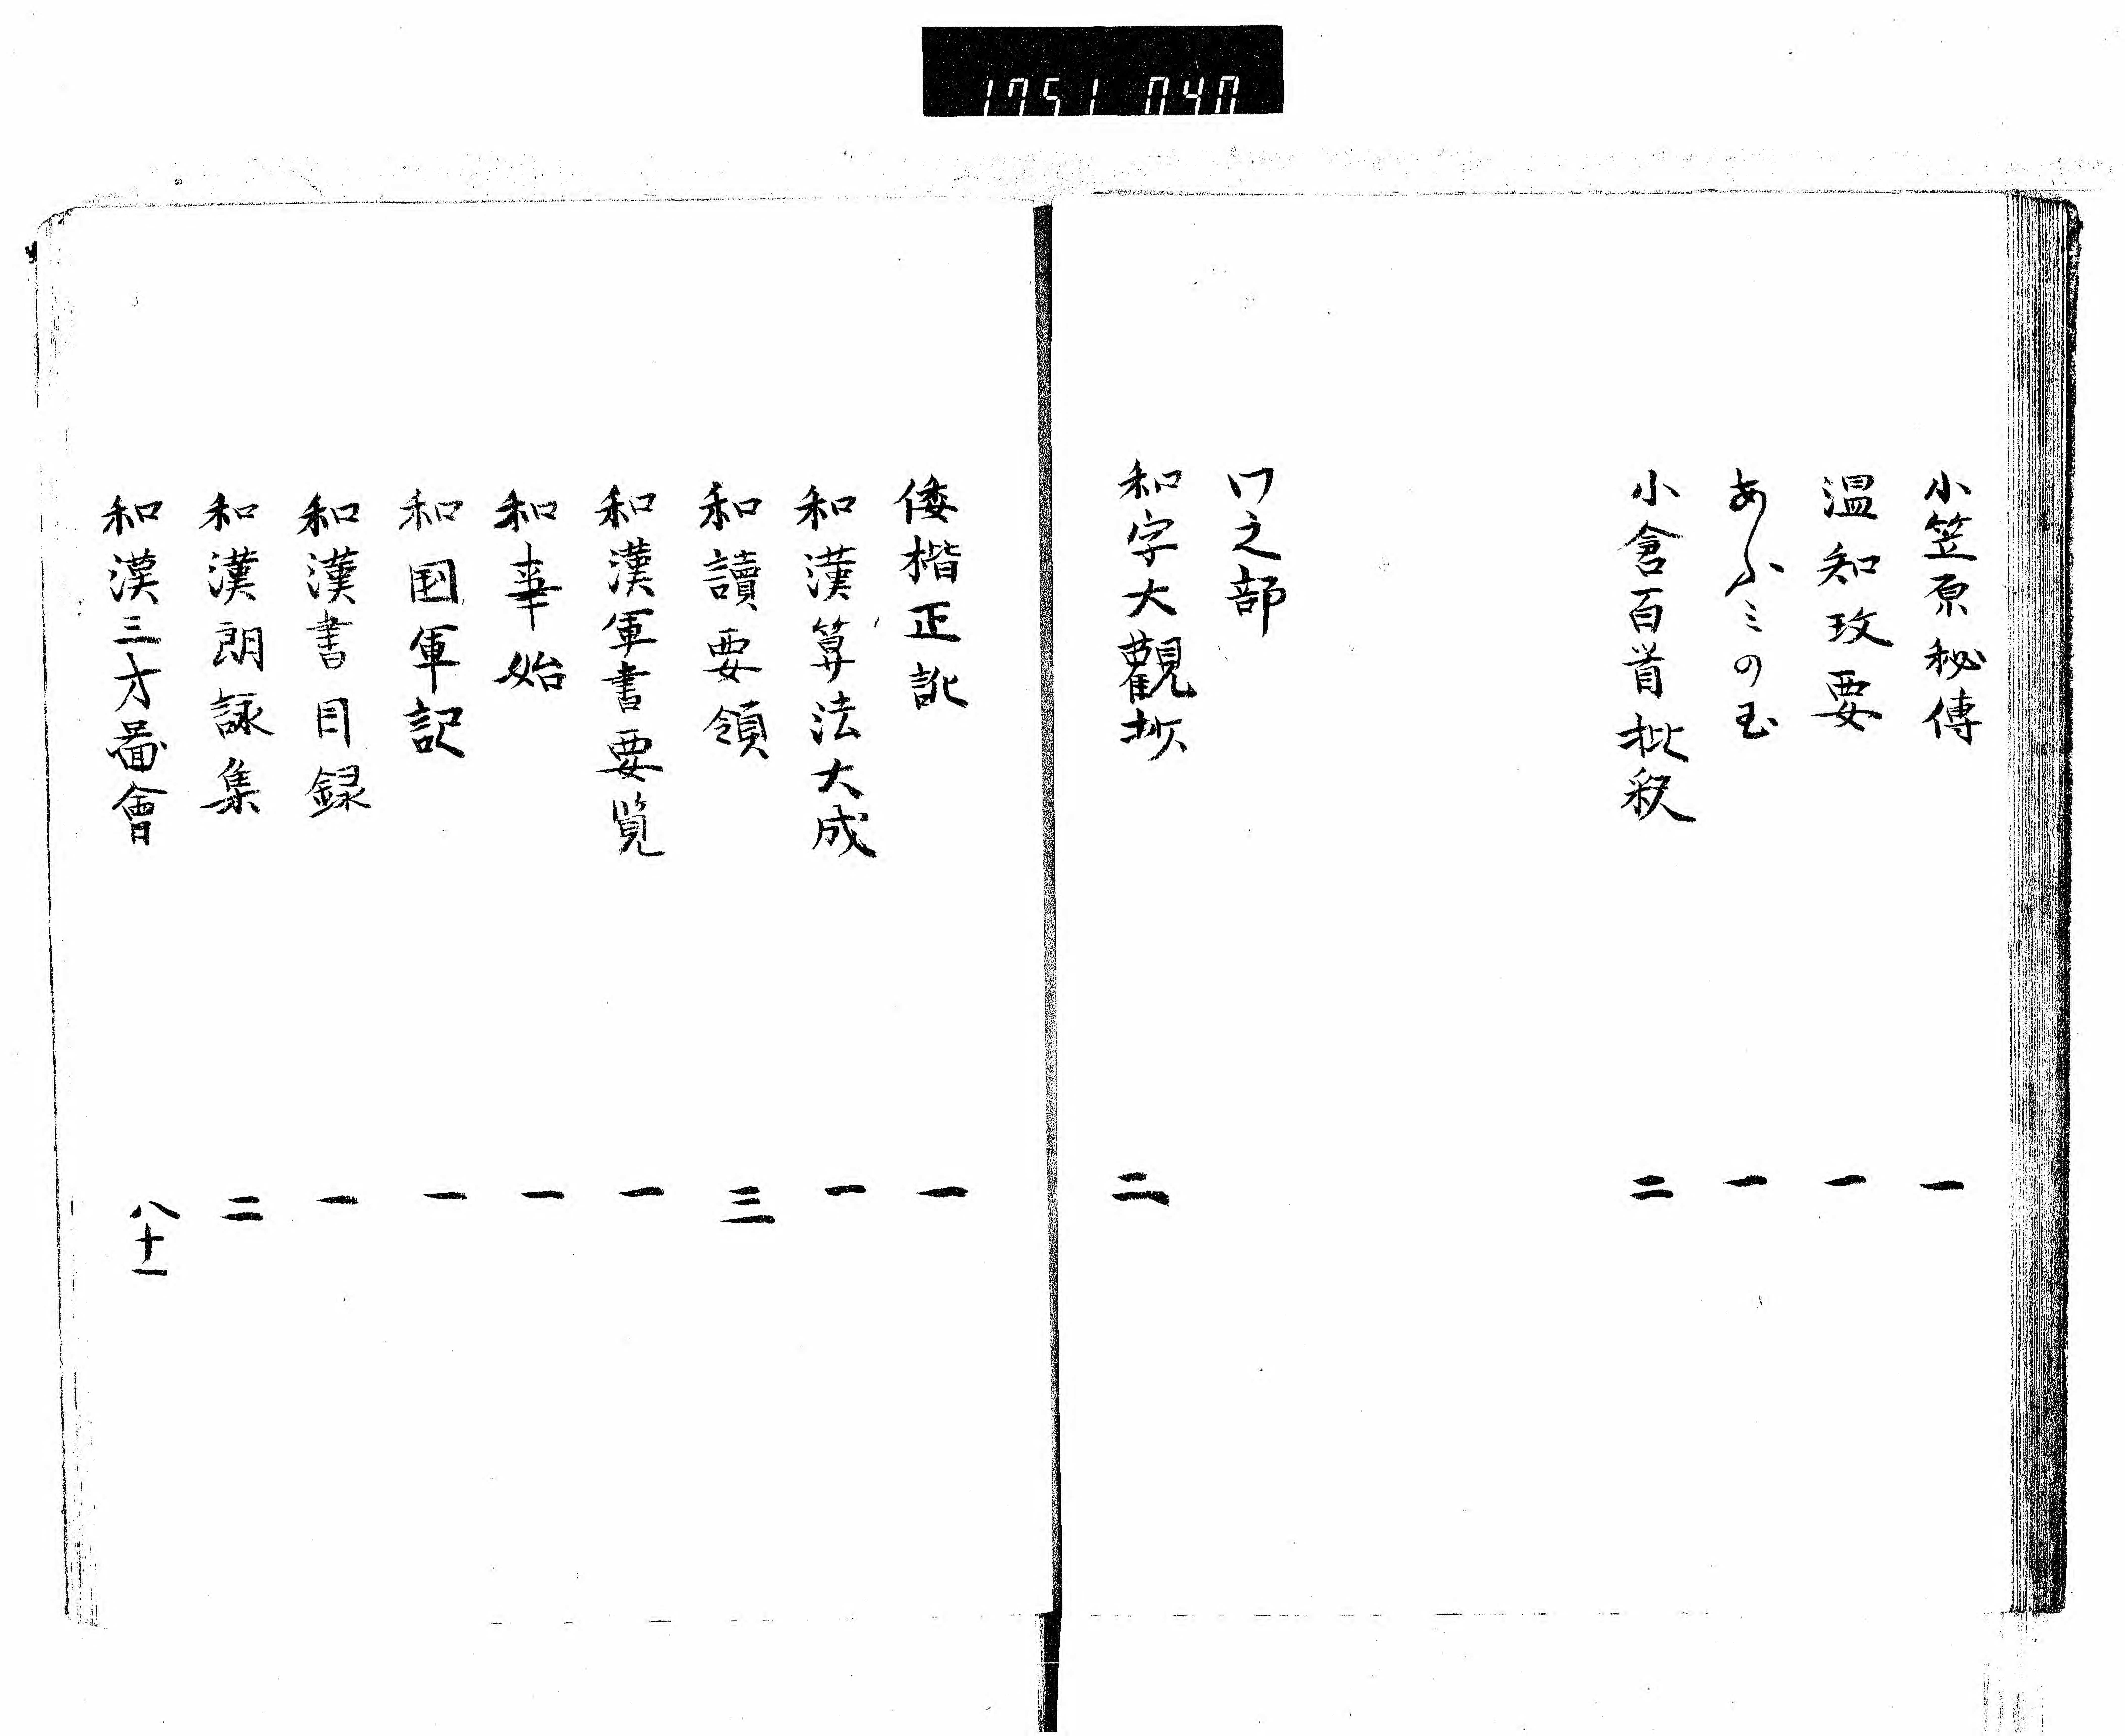 1751 040
小笠原秘傳 一
温知攻要 一
あふミの玉 一
小倉百首批釈 二
ワ之部
和字大觀抄 二
倭楷正訛 一
和漢算法大成 一
和讀要領 三
和漢軍書要覧 一
和事始 一
和国軍記 一
和漢書目録 一
和漢朗詠集 二
和漢三才圖會 八十一